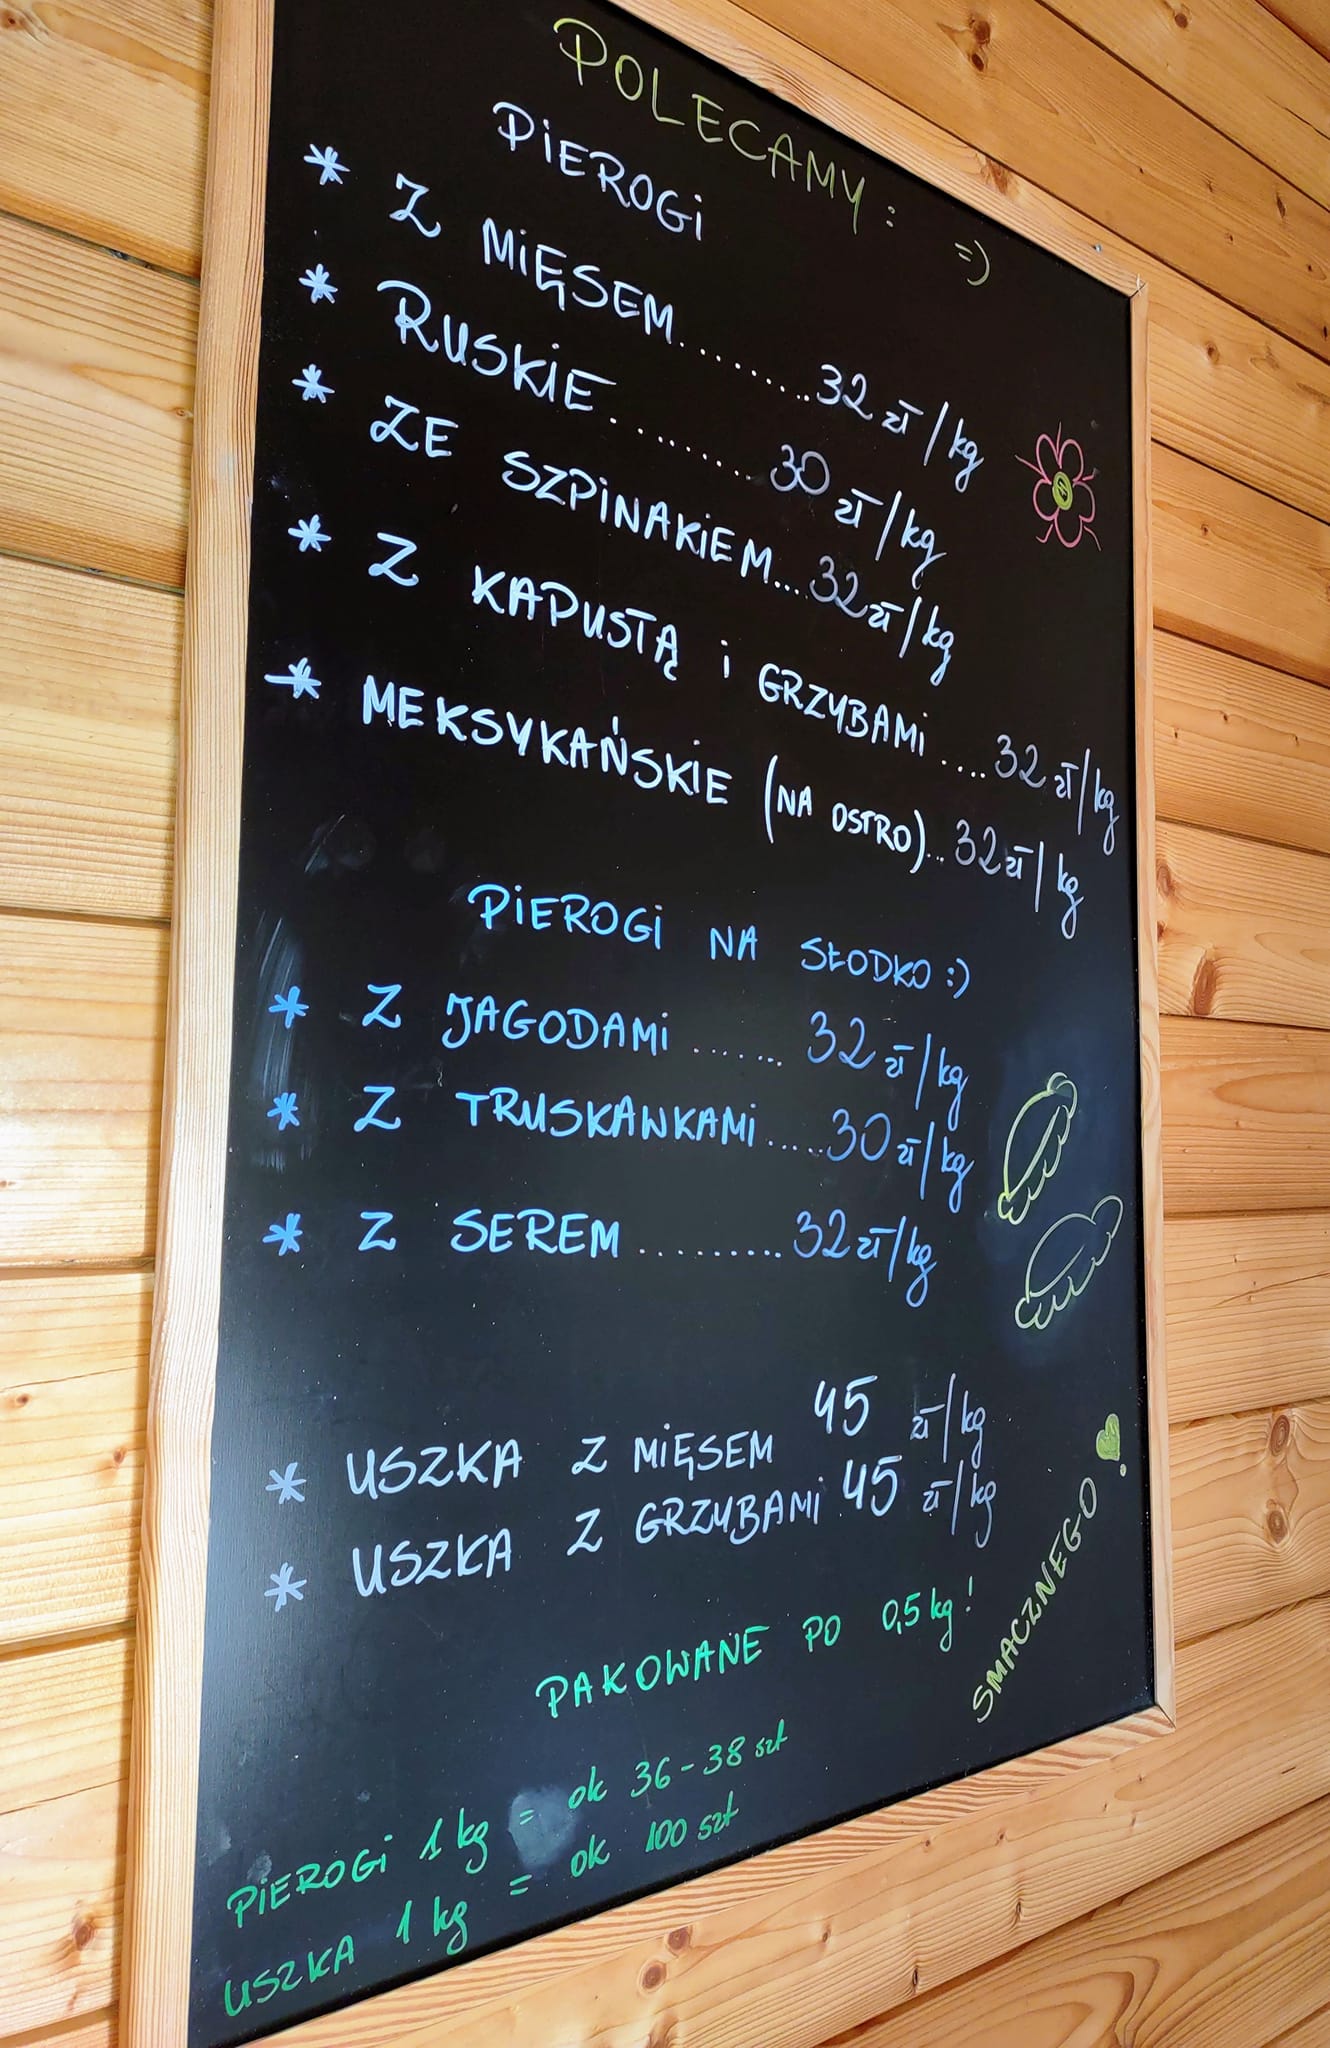 POLECAMY: =)
PIEROGI
* Z MIĘSEM.........32 zł/kg
* RUSKIE.........30 zł/kg
* ZE SZPINAKIEM...32 zł/kg
* Z KAPUSTĄ i GRZYBAMI....32 zł/kg
* MEKSYKAŃSKIE (NA OSTRO)...32 zł/kg
PIEROGI NA SŁODKO :)
* Z JAGODAMI....... 32 zł/kg
* Z TRUSKAWKAMI.....30 zł/kg
* Z SEREM.........32 zł/kg
* USZKA Z MIĘSEM 45 zł/kg
* USZKA Z GRZYBAMI 45 zł/kg
PAKOWANE PO 0,5 kg!
SMACZNEGO!
PIEROGI 1 kg = ok 36-38 szt
USZKA 1 kg = ok 100 szt